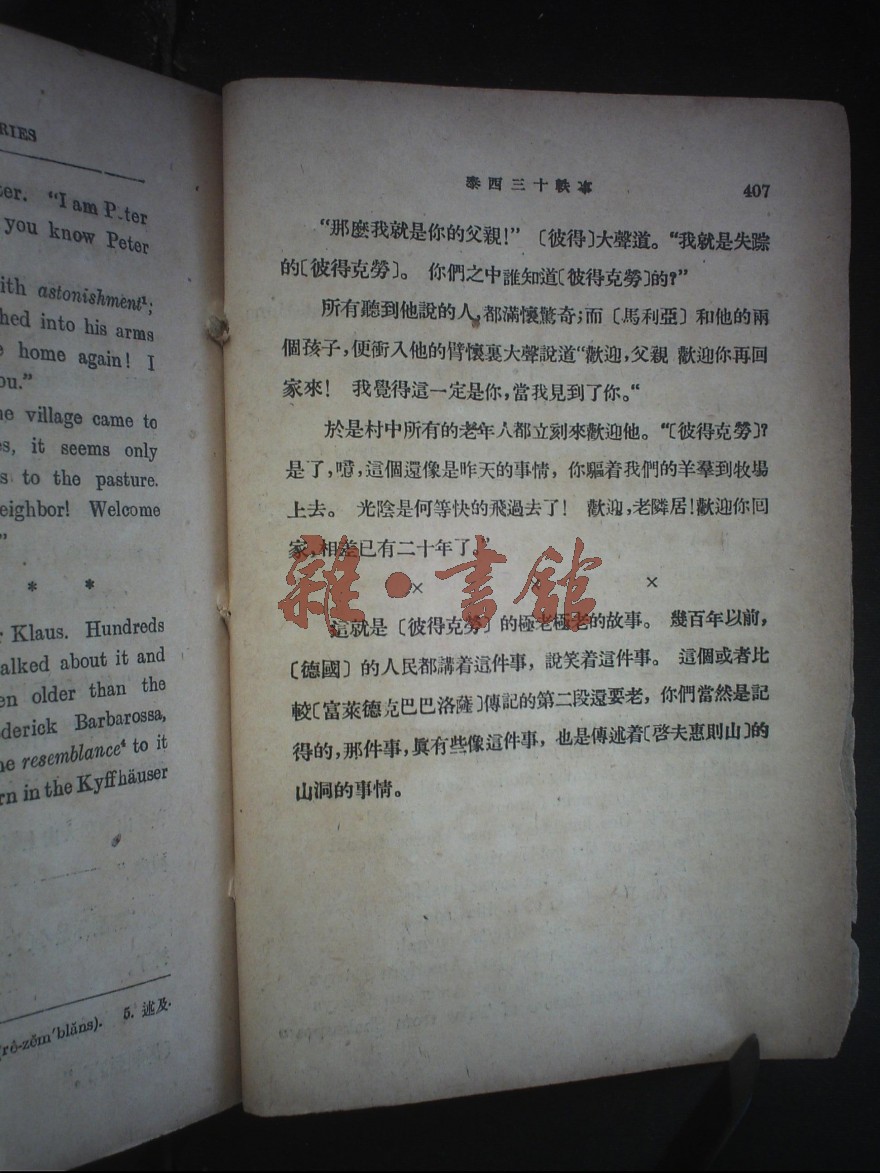 RIES
"I am P.ter
you know Peter
ith astonishment¹;
hed into his arms
home again! I
ou."
ne village came to
es, it seems only
s to the pasture.
eighbor! Welcome
"
* *
r Klaus. Hundreds
alked about it and
en older than the
derick Barbarossa,
ne resemblance⁴ to it
rn in the Kyffhäuser
(rê-zĕm'blăns). 5. 述及.
泰西三十軼事 407
“那麼我就是你的父親!” 〔彼得〕大聲道。“我就是失踪
的〔彼得克勞〕。 你們之中誰知道〔彼得克勞〕的?”
所有聽到他說的人,都滿懷驚奇;而〔馬利亞〕和他的兩
個孩子,便衝入他的臂懷裏大聲說道“歡迎,父親 歡迎你再回
家來! 我覺得這一定是你,當我見到了你。“
於是村中所有的老年人都立刻來歡迎他。“〔彼得克勞〕?
是了,噫,這個還像是昨天的事情,你驅着我們的羊羣到牧場
上去。 光陰是何等快的飛過去了! 歡迎,老隣居!歡迎你回
家,相差已有二十年了。”
× × ×
這就是〔彼得克勞〕的極老極老的故事。 幾百年以前,
〔德國〕的人民都講着這件事,說笑着這件事。 這個或者比
較〔富萊德克巴巴洛薩〕傳記的第二段還要老,你們當然是記
得的,那件事,眞有些像這件事,也是傳述着〔啓夫惠則山〕的
山洞的事情。
雜·書館